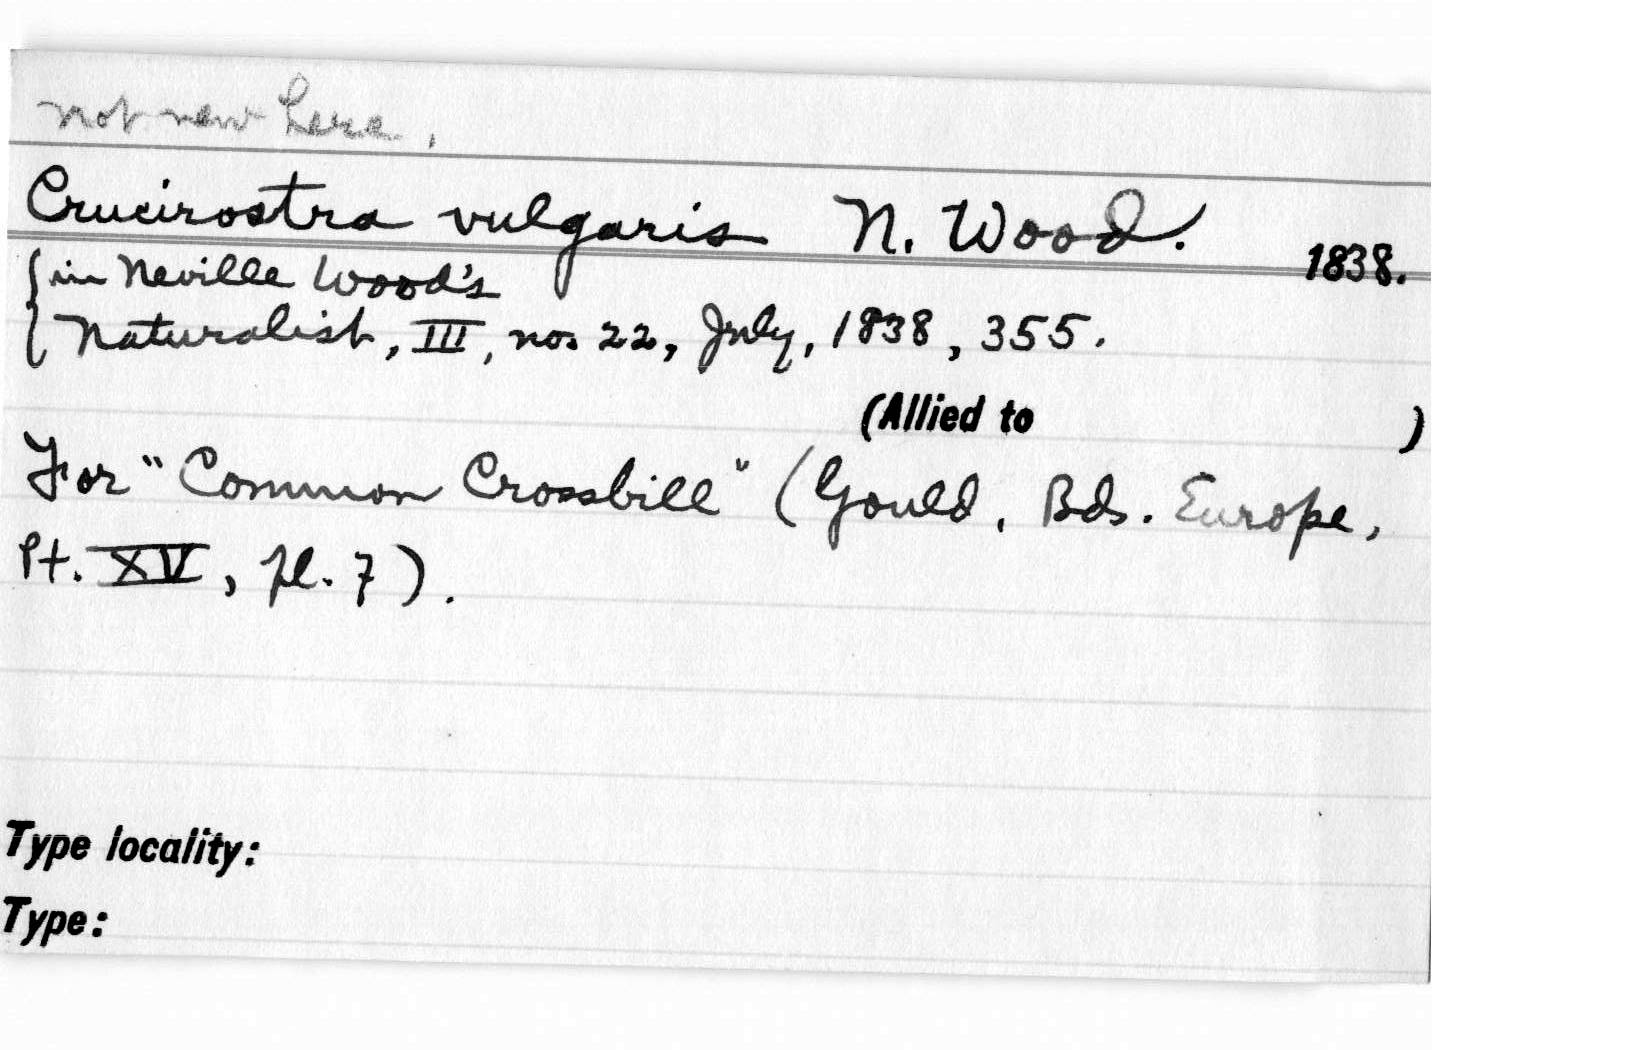 not new here,
Crucirostra vulgaris N. Wood. 1838.
{in Neville Wood's
{Naturalist, III, no. 22, July, 1838, 355.
(Allied to )
For "Common Crossbill" (Gould, Bds. Europe,
Pt. XV, pl. 7).
Type locality:
Type: